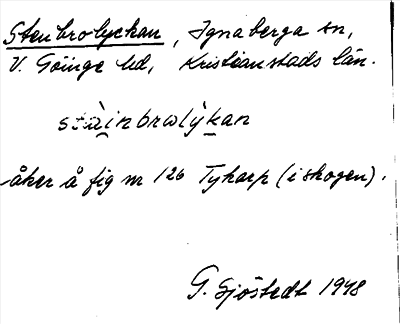 Stenbrolyckan, Ignaberga sn,
V. Göinge hd, Kristianstads län.
stài̯nbrωlỳk̯an
åker å fig nr 126 Tykarp (i skogen).
G. Sjöstedt 1948